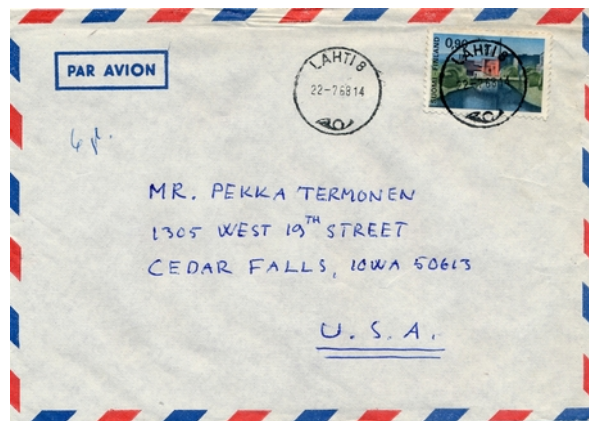 PAR AVION
LAHTI 8
22-7.68 14
SUOMI-FINLAND
0,90
LAHTI 8
22-7.68 14
MR. PEKKA TERMONEN
1305 WEST 19TH STREET
CEDAR FALLS, IOWA 50613
U.S.A.